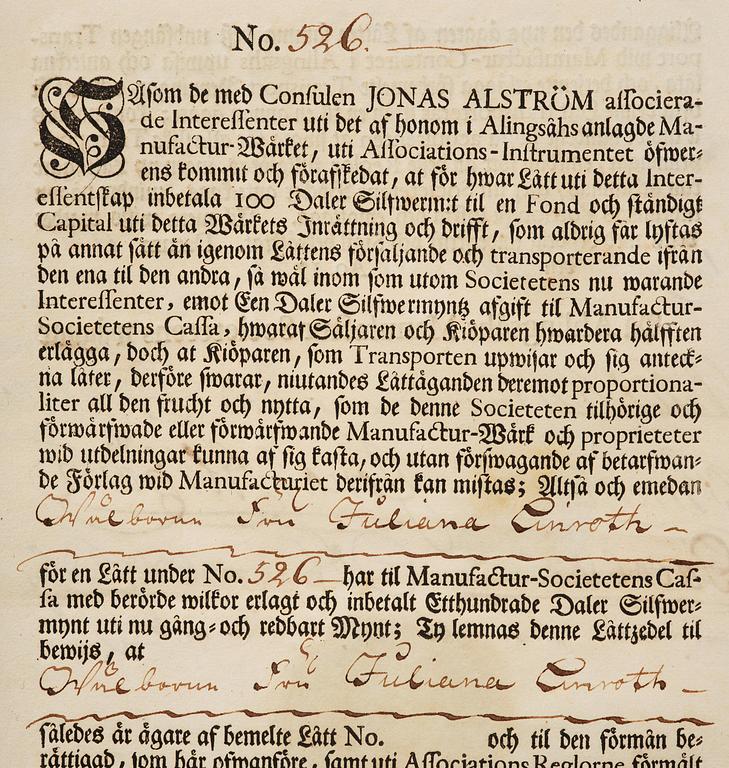 No. 526.
Såsom de med Consulen JONAS ALSTRÖM associera-
de Interessenter uti det af honom i Alingsåhs anlagde Ma-
nufactur-Wärket, uti Associations-Instrumentet öfwer-
ens kommit och förafskedat, at för hwar Lått uti detta Inter-
essentskap inbetala 100 Daler Silfwerm:t til en Fond och ständigt
Capital uti detta Wärkets Inrättning och drifft, som aldrig får lyftas
på annat sätt än igenom Låttens försäljande och transporterande ifrån
den ena til den andra, så wäl inom som utom Societetens nu warande
Interessenter, emot Een Daler Silfwermyntz afgift til Manufactur-
Societetens Cassa, hwaraf Säljaren och Kiöparen hwardera hälfften
erlägga, doch at Kiöparen, som Transporten upwisar och sig anteck-
na låter, derföre swarar, niutandes Låttäganden deremot proportiona-
liter all den frucht och nytta, som de denne Societeten tilhörige och
förwärfwade eller förwärfwande Manufactur-Wärk och proprieteter
wid utdelningar kunna af sig kasta, och utan förswagande af betarfwan-
de Förlag wid Manufacturiet derifrån kan mistas; Altså och emedan
Wälborne Fru Juliana Linroth
för en Lått under No. 526 har til Manufactur-Societetens Cas-
sa med berörde wilkor erlagt och inbetalt Etthundrade Daler Silfwer-
mynt uti nu gång- och redbart Mynt; Ty lemnas denne Låttzedel til
bewijs, at
Wälborne Fru Juliana Linroth
således är ägare af bemelte Lått No. och til den förmån be-
rättigad, som här ofwanföre, samt uti Associations Reglorne förmält